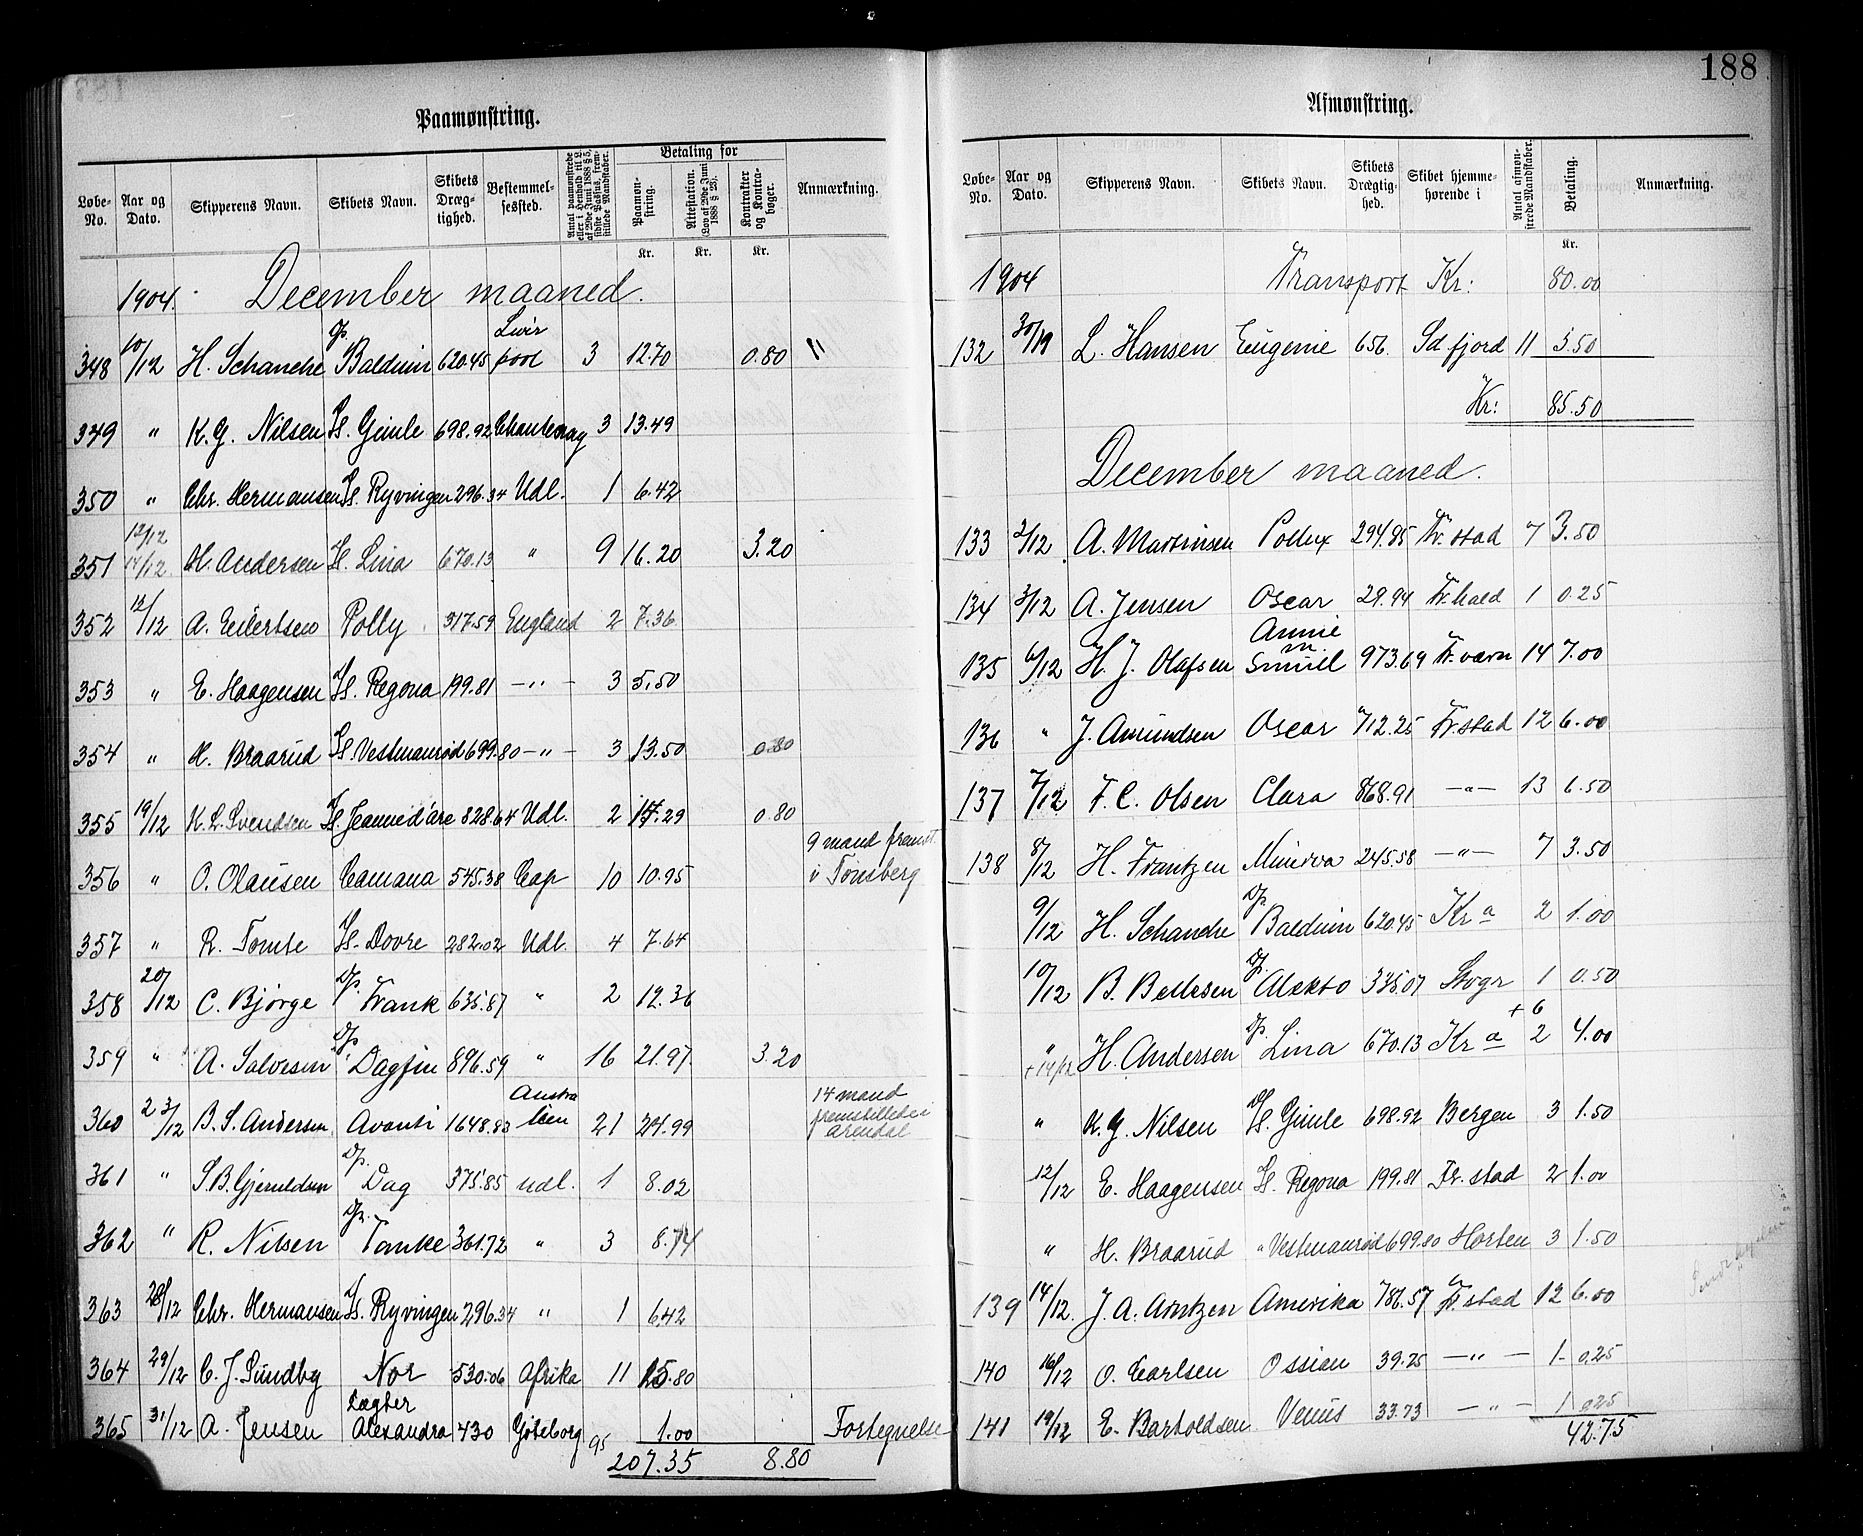 188
Paamønstring.
Løbe-No. Aar og Dato. Skipperens Navn. Skibets Navn. Skibets Dræg-tighed. Bestemmel-sessted. Antal paamønstrede eller i Henhold til L. af 29de Juni 1888 § 5, sidste Passus, frem-stillede Mandskaber. Betaling for Paamøn-string. Attestation. (Lov af 29de Juni 1888 § 26). Kontrakter og Kontra-bøger. Anmærkning.
Kr. Kr. Kr.
1904. December maaned.
348 10/12 H. Schanche Dp. Balduin 620.45 Liverpool 3 12.70 0.80 "
349 " K. G. Nilsen Ds. Gimle 698.92 Chantenay 3 13.49
350 " Chr. Hermansen Ds. Ryvingen 296.34 Udl. 1 6.42
351 12/12 14/12 H. Andersen Ds. Lina 670.13 " 9 16.20 3.20
352 12/12 A. Eilertsen Polly 317.59 England 2 7.36
353 " E. Haagensen Ds. Regona 199.81 -"- 3 5.50
354 " H. Braarud Ds. Vestmanrød 699.80 -"- 3 13.50 0.80
355 19/12 K. L. Svendsen Ds. Jeanne d'arc 828.64 Udl. 2 14.29 0.80
356 " O. Olausen Camana 545.38 Cap 10 10.95 9 mand fremst. i Tønsberg
357 " R. Tomte Ds. Dovre 282.02 Udl. 4 7.64
358 20/12 C. Bjørge Dp. Frank 635.87 " 2 12.36
359 " A. Salvesen Dp. Dagfin 896.59 " 16 21.97. 3.20
360 23/12 B. S. Andersen Avanti 1648.83 Australien 21 24.99 14 mand fremstillede i Arendal
361 " S. B. Gjeruldsen Dp. Dag 375.85 udl. 1 8.02
362 " R. Nilsen Dp. Tanke 361.72 " 3 8.74
363 28/12 Chr. Hermansen Ds. Ryvingen 296.34 " 1 6.42
364 29/12 C. J. Sundby Nor 530.06 Afrika 11 15.80
365 31/12 A. Jensen Lægter Alexandra 430 Göteborg 1.00 Fortegnelse
95 207.35 8.80
Afmønstring.
Løbe-No. Aar og Dato. Skipperens Navn. Skibets Navn. Skibets Drægtig-hed. Skibet hjemme-hørende i Antal afmøn-strede Mandskaber. Betaling. Anmærkning.
Kr.
1904 Transport Kr: 80.00
132 30/11 L. Hansen Eugenie 656. Sdfjord 11 5.50
Kr: 85.50
December maaned.
133 2/12 A. Martinsen Pollux 294.85 Fr.stad 7 3.50
134 3/12 A. Jensen Oscar 29.94 Fr.hald 1 0.25
135 6/12 H. J. Olafsen Annie m. Smuel 973.69 Fr.værn 14 7.00
136 " J. Amundsen Oscar 712.25 Fr.stad 12 6.00
137 7/12 F. C. Olsen Clara 868.91 -"- 13 6.50
138 8/12 H. Frantzen Minerva 245.58 -"- 7 3.50
9/12 H. Schanche Dp. Balduin 620.45 Kra 2 1.00
10/12 B. Bellesen Dp. Alekto 335.07 Stvgr 1 0.50
" +14/12 H. Andersen Dp. Lina 670.13 Kra +6 2 4.00
" K. G. Nilsen Ds. Gimle 698.92 Bergen 3 1.50
12/12 E. Haagensen Ds. Regona 199.81 Fr.stad 2 1.00
" H. Braarud " Vestmanrød 699.80 Horten 3 1.50
139 14/12. J. A. Arntzen Amerika 786.57 Fr.stad 12 6.00
140 16/12 O. Carlsen Ossian 39.25 -"- 1 0.25
141 19/12 E. Bartholdsen Venus 33.73 -"- 1 0.25
42.75